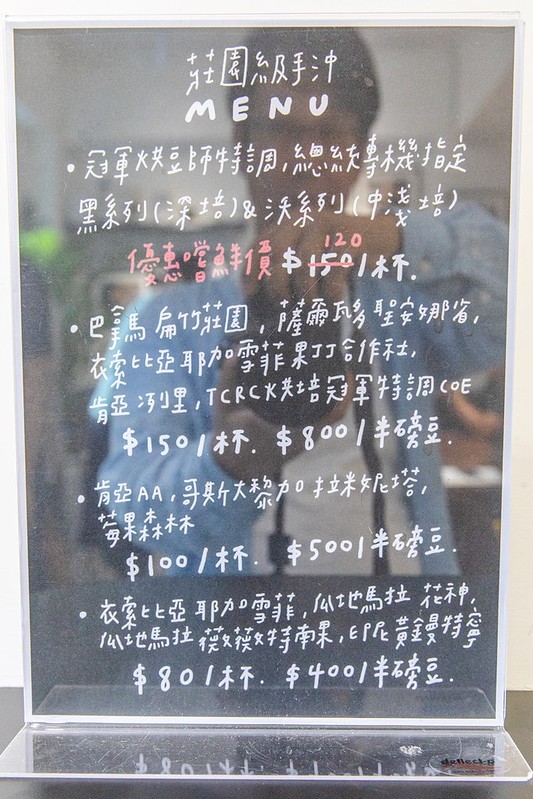 莊園級手沖
MENU
• 冠軍烘豆師特調,總統專機指定
黑系列(深培)&沃系列(中淺培)
120
優惠嚐鮮價 $150/杯.
• 巴拿馬 扁竹莊園, 薩爾瓦多 聖安娜省,
衣索比亞 耶加雪菲 果丁丁合作社,
肯亞 冽里, TCRCK烘培冠軍特調COE
$150/杯. $800/半磅豆.
• 肯亞AA, 哥斯大黎加 拉米妮塔,
莓果森林
$100/杯. $500/半磅豆.
• 衣索比亞 耶加雪菲, 瓜地馬拉 花神,
瓜地馬拉 薇薇特南果, 印尼 黃金曼特寧
$80/杯. $400/半磅豆.
deflect-o